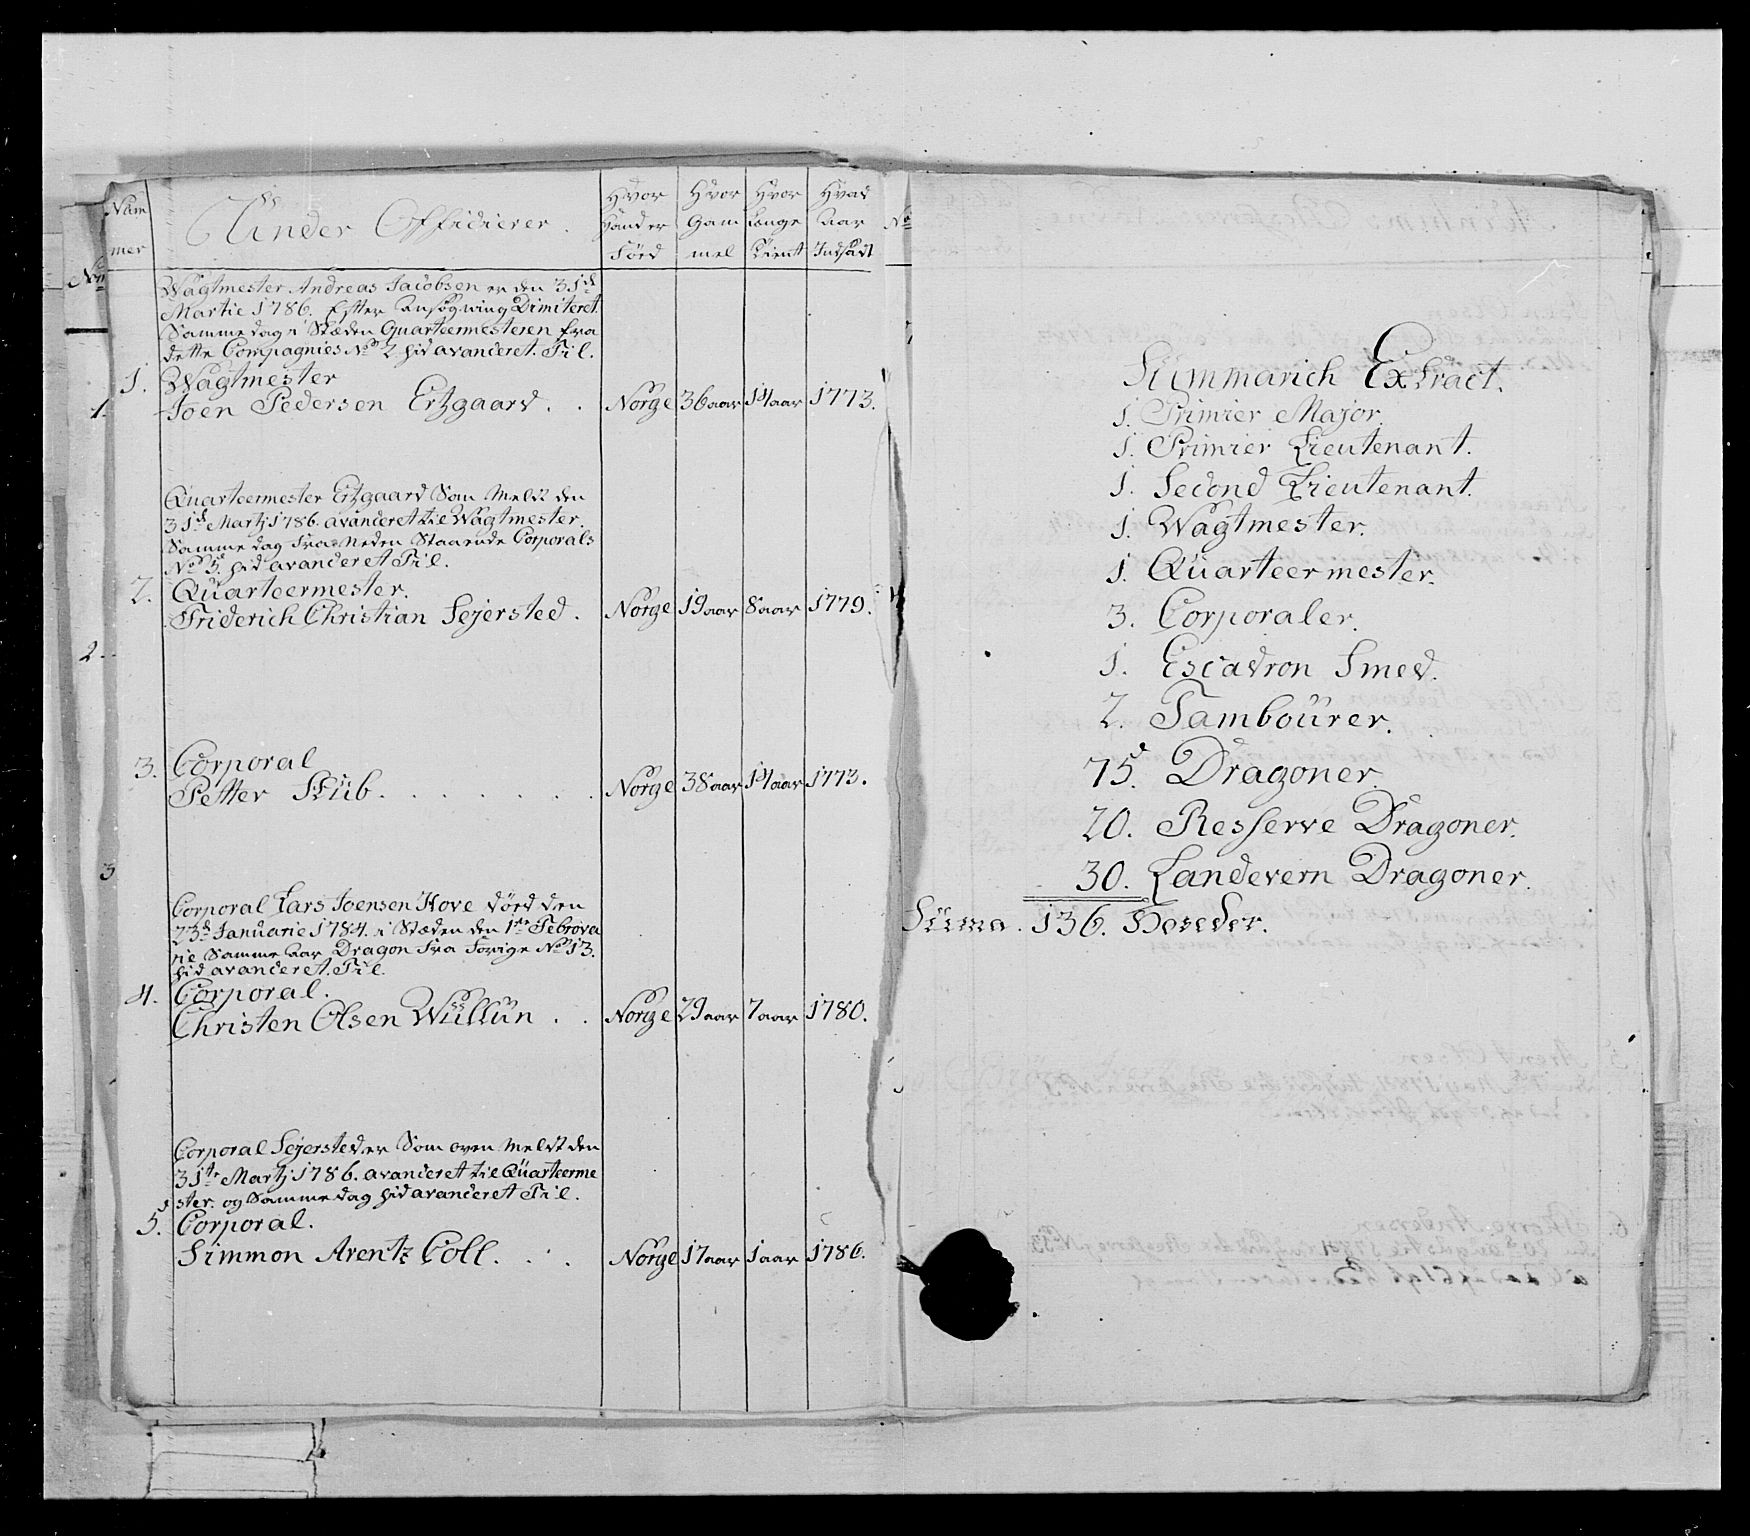 Num
mer
Under Officierer.
Hvor
Hand er
Föed
Hvor
Gam
mel
Hvor
Længe
Tient
Hvad
Aar
Indsadt
No
Wagtmester Andreas Jacobsen er den 31d
Martie 1786. Efter Ansøgning Dimiteret
Samme dag i Stæden Quarteermesteren fra
dette Compagnies No 2 hid avanceret. Til.
1. Wagtmester
Joen Pedersen Ertzgaard . . Norge 36 aar 14 aar 1773.
1.
Quarteermester Ertzgaard Som Meldt den
31d Martj 1786. avanceret til Wagtmester.
Samme dag fra Neden Staaende Corporals
No 5. hid avanceret Til.
2. Quarteermester.
Friderich Christian Sejersted. Norge 19 aar 8 aar 1779.
2.
3. Corporal
Petter Stub. . . . . . . Norge 38 aar 14 aar 1773.
3
Corporal Lars Joensen Hove döed den
23d Januarie 1784. i Stæden den 1te Febrova
rie Samme Aar Dragon fra Forige No 13.
hid avanceret. Til.
4. Corporal.
Christen Olsen Wüllün . . Norge 29 aar 7 aar 1780.
Corporal Sejersted er Som oven Meldt den
31te Martj 1786. avanceret til Quarteerme
ster. og Samme dag hid avanceret Til.
5. Corporal.
Simmon Arentz Coll. . . Norge 17 aar 1 aar 1786.
No
Summarich Extract.
1. Primier Major.
1. Primier Lieutenant.
1. Second Lieutenant.
1. Wagtmester.
1. Quarteermester.
3. Corporaler.
1. Escadron Smed.
2. Tambourer.
75. Dragoner.
20. Resserve Dragoner.
30. Landevern Dragoner.
Suma. 136. Hoveder.